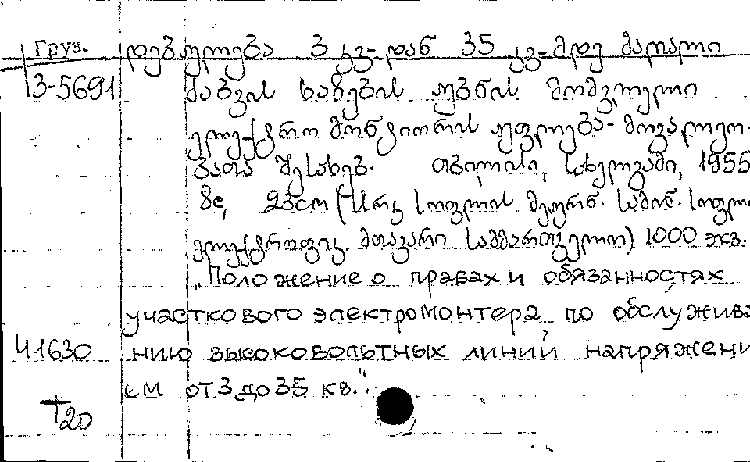 Груз. დებულება 3 კვ-დან 35 კვ-მდე მაღალი
3-5691 ძაბვის ხაზების უბნის მომვლელი
ელექტრო მონტიორის უფლება-მოვალეო-
ბათა შესახებ. თბილისი, სახელგამი, 1955
8с, 23см (სსრკ სოფლის მეურნ. სამინ. სოფლ
ელექტროფიკ. მთავარი სამმართველო) 1000 экз.
„Положение о правах и обязанностях
участкового электромонтера по обслужива
41630 нию высоковольтных линий напряжени
ем от 3 до 35 кв."
т20